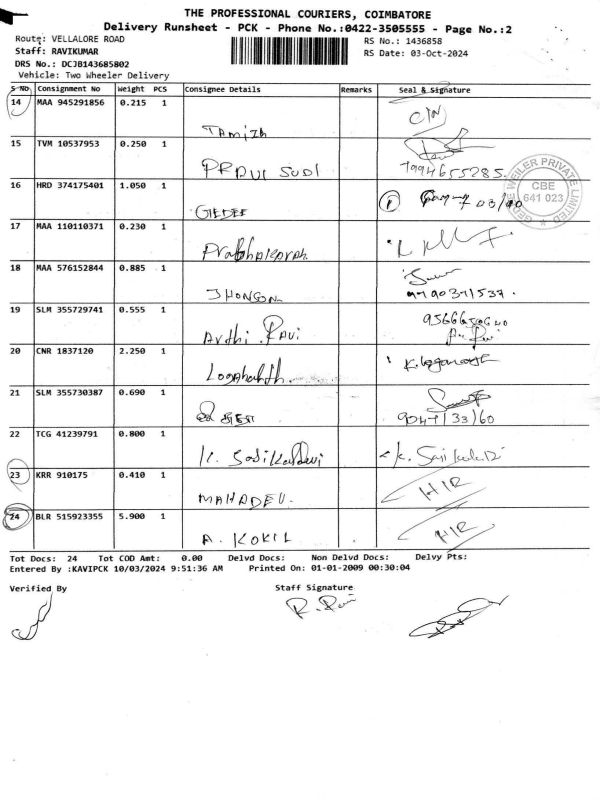 THE PROFESSIONAL COURIERS, COIMBATORE
Delivery Runsheet - PCK - Phone No.:0422-3505555 - Page No.:2
Route: VELLALORE ROAD RS No.: 1436858
Staff: RAVIKUMAR RS Date: 03-Oct-2024
DRS No.: DCJB143685802
Vehicle: Two Wheeler Delivery
S No Consignment No Weight PCS Consignee Details Remarks Seal & Signature
14 MAA 945291856 0.215 1
TAMIZH
15 TVM 10537953 0.250 1
SUDI 7994655285
16 HRD 374175401 1.050 1
GEDEE 03/10
WEILER PRIVATE LIMITED
CBE
641 023
17 MAA 110110371 0.230 1
Prabhakarah
18 MAA 576152844 0.885 1
JHONSON
19 SLM 355729741 0.555 1
Arthi Ravi
20 CNR 1837120 2.250 1
21 SLM 355730387 0.690 1
22 TCG 41239791 0.800 1
K. Sasikaladevi
23 KRR 910175 0.410 1
MAHADEV. HIR
24 BLR 515923355 5.900 1
A. KOKIL HIR
Tot Docs: 24 Tot COD Amt: 0.00 Delvd Docs: Non Delvd Docs: Delvy Pts:
Entered By :KAVIPCK 10/03/2024 9:51:36 AM Printed On: 01-01-2009 00:30:04
Verified By Staff Signature